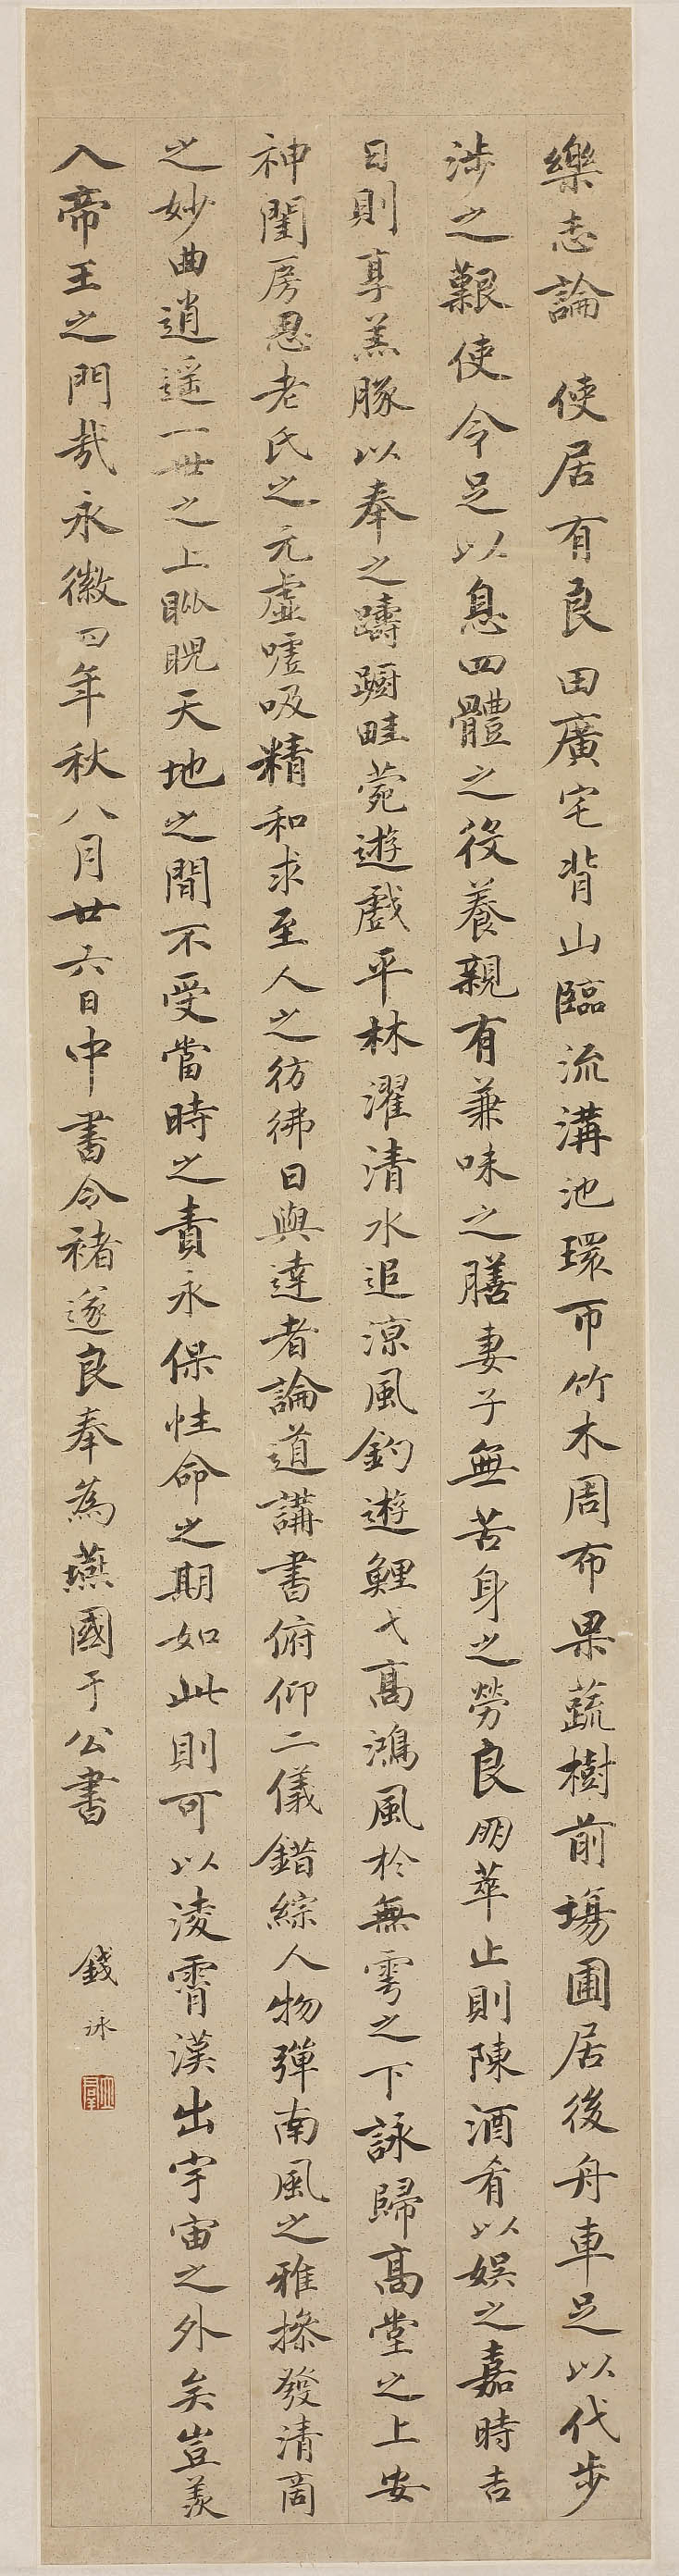 樂志論　使居有良田廣宅背山臨流溝池環帀竹木周布果蔬樹前塲圃居後舟車足以代步
涉之艱使令足以息四體之役養親有兼味之膳妻子無苦身之勞良朋萃止則陳酒肴以娛之嘉時吉
日則享羔豚以奉之躊躕畦菀遊戲平林濯清水追涼風釣遊鯉弋高鴻風於無雩之下詠歸高堂之上安
神閨房思老氏之元虛噓吸精和求至人之彷彿日與達者論道講書俯仰二儀錯綜人物彈南風之雅操發清商
之妙曲逍遥一世之上睥睨天地之間不受當時之責永保性命之期如此則可以淩霄漢出宇宙之外矣豈羨
入帝王之門哉永徽四年秋八月廿六日中書令褚遂良奉為燕國于公書　錢泳